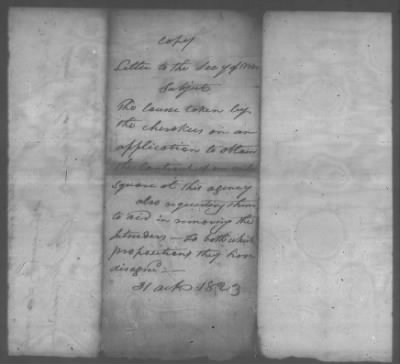 copy
Letter to the Secy of War
Subject
The course taken by
the cherokees on an
application to obtain
the Control of one mile
square at this agency
also requesting them
to aid in removing the
Intruders — to both which
propositions they have
disagreed —
31 1823